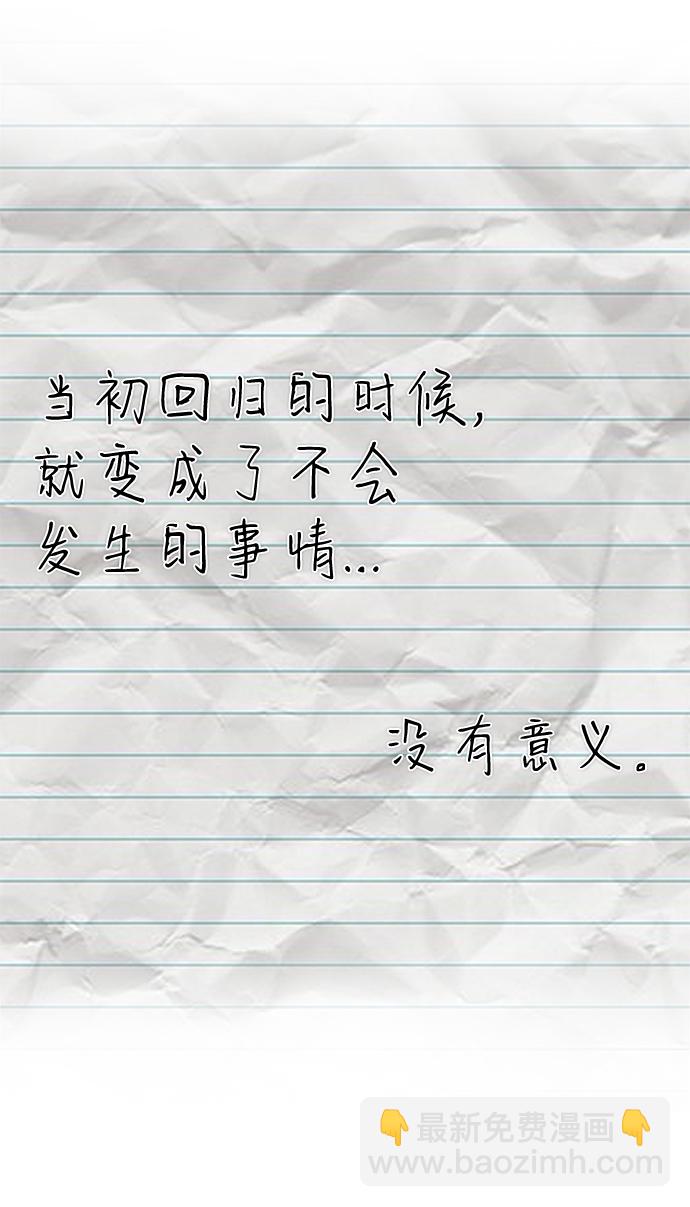 当初回归的时候,
就变成了不会
发生的事情...
没有意义。
👇最新免费漫画👇
www.baozimh.com